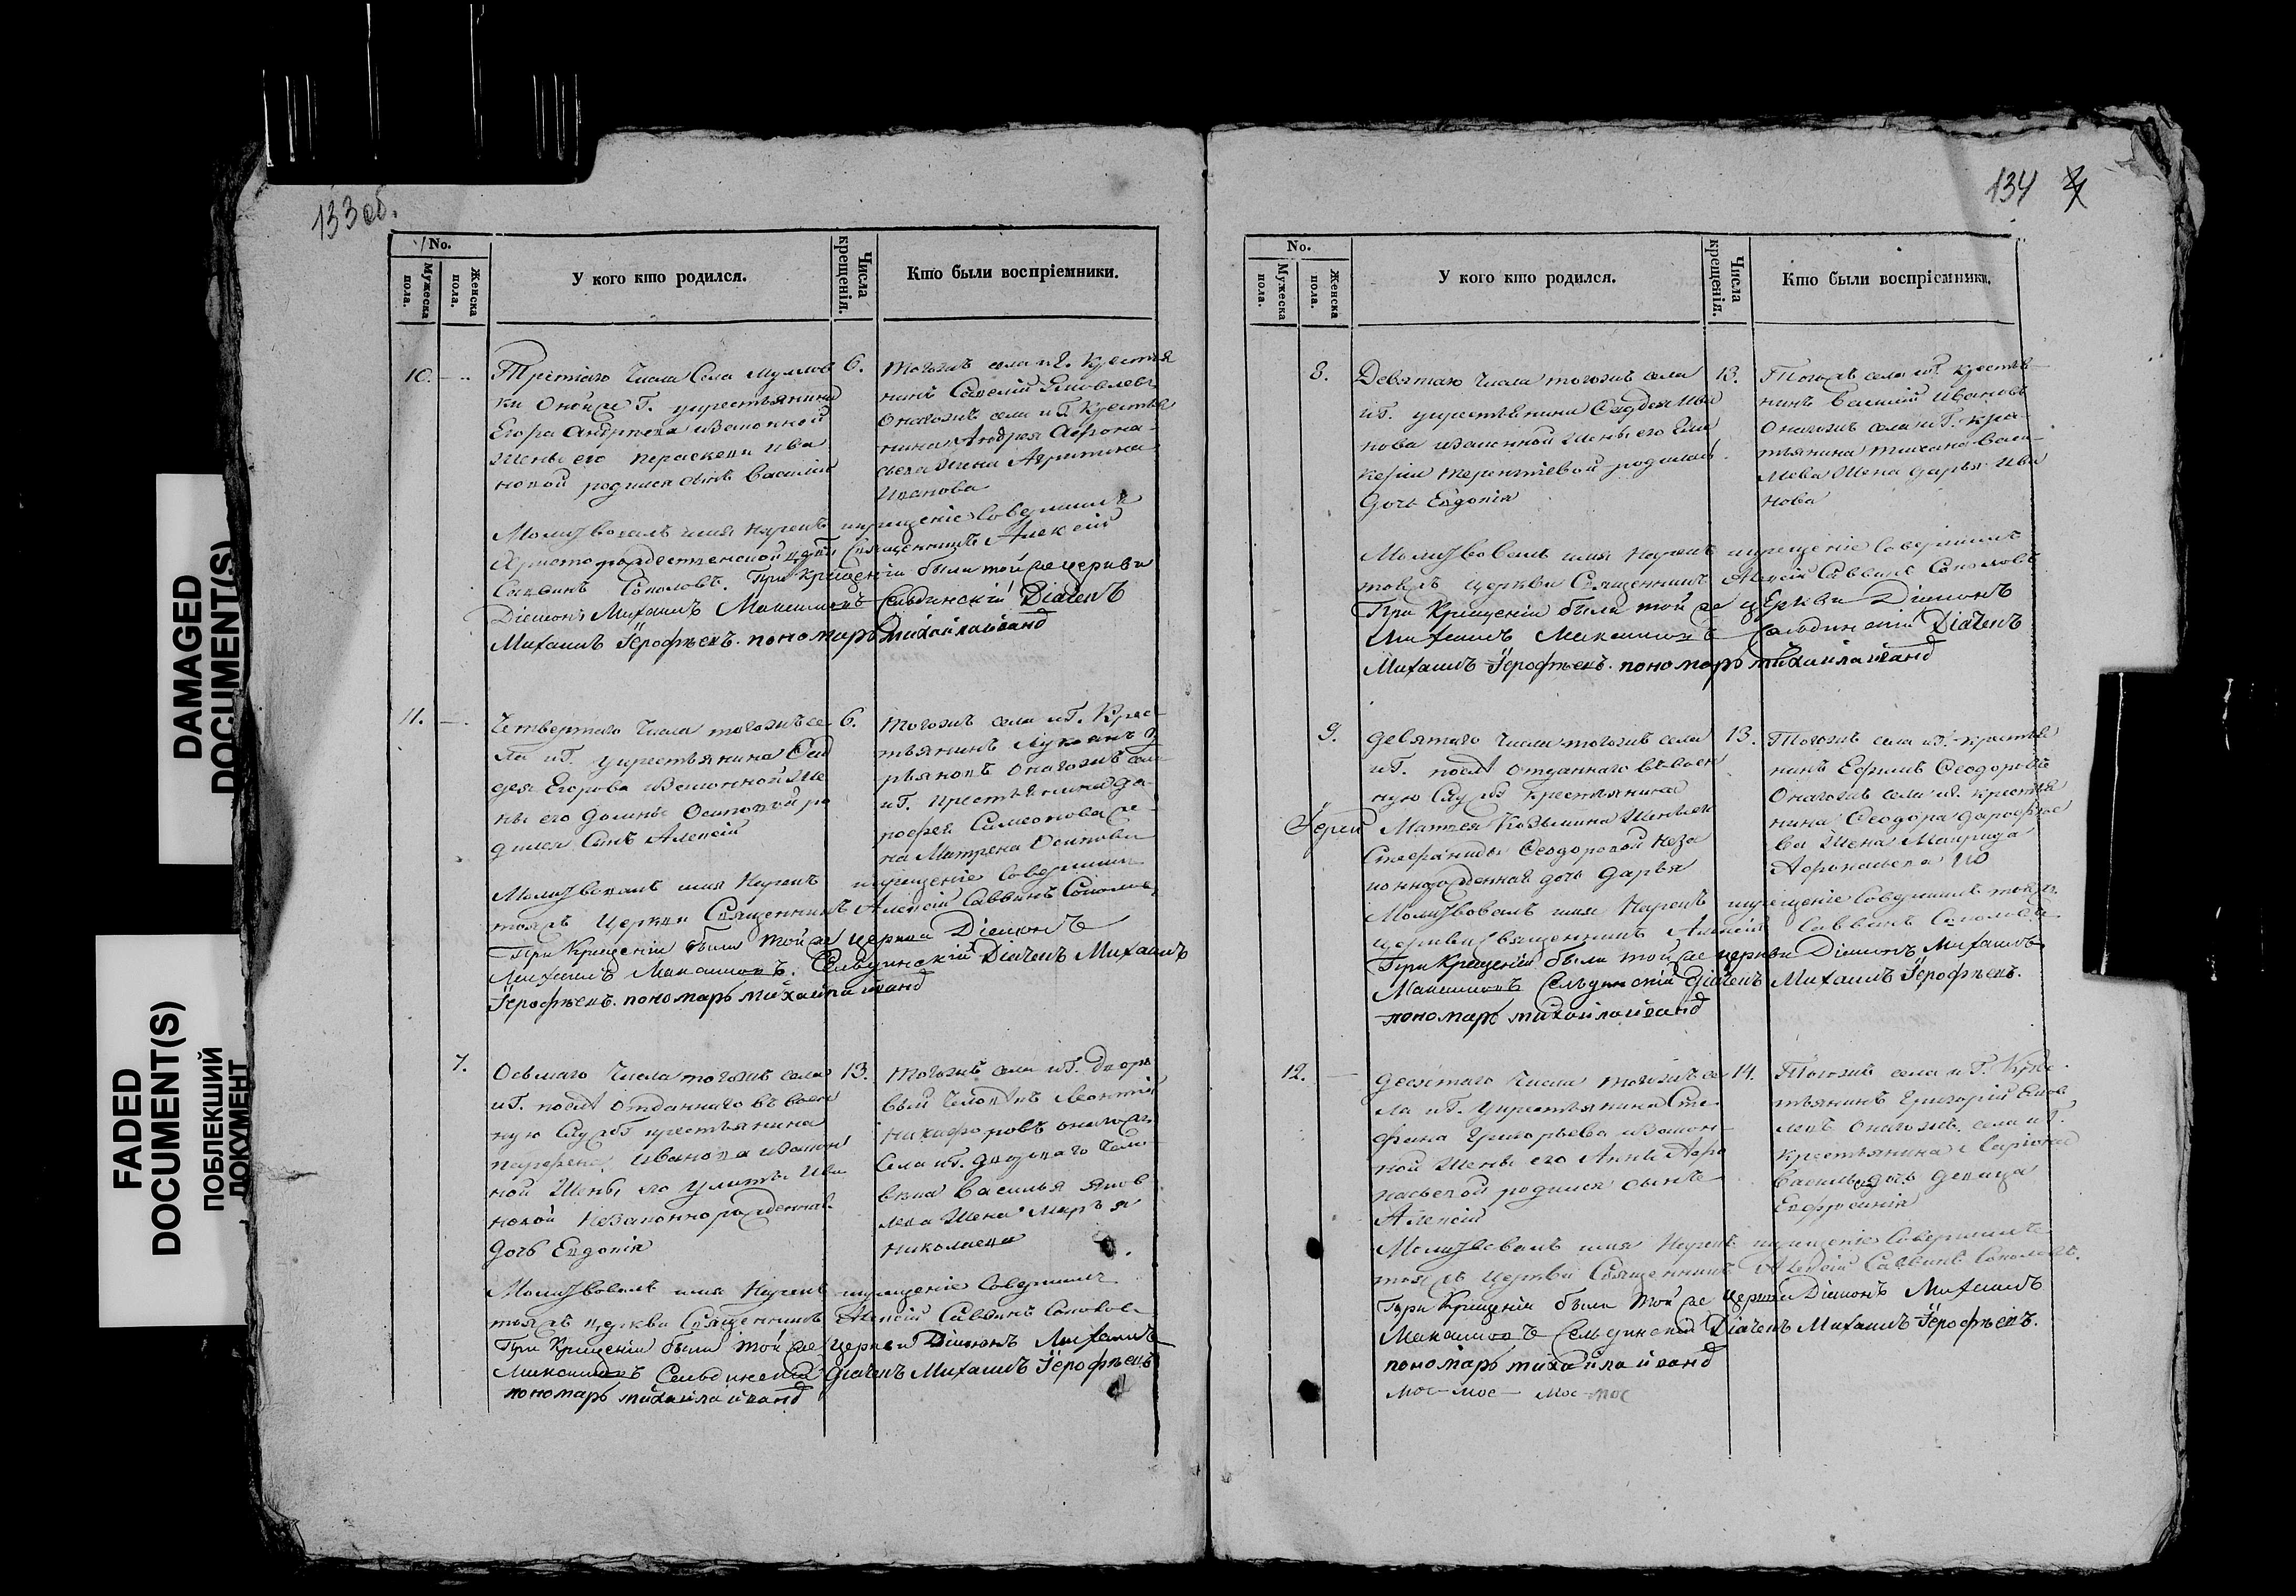 133 об.
No.
Мужеска пола.
Женска пола.
У кого кто родился.
Числа крещенія.
Кто были воспріемники.
10.
Третіяго числа Села Муллов
ки Онойже Г. укрестьянина
Егора Андреева изаконной
жены его Параскеви Ива
новой родился сынъ Василій
6.
тогожъ села иг. крестья
нинъ Савелій Яковлевъ
Онагожъ села иг. крестья
нина Андрея Афона
сьева жена
Иванова
Молитвовалъ имя нарекъ икрещеніе совершилъ
Христорождественской церкви Священникъ Алексій
Саввинъ Соколовъ. При крещеніи были тойже церкви
Діаконъ Михаилъ Сельдинскій Діачекъ
Михаилъ Іерофѣевъ. пономарь михайла иванд
11.
Четвертаго числа тогожъ се
ла иг. укрестьянина Фад
дея Егорова изаконной же
ны его Осиповой ро
дился сынъ Алексій
6.
тогожъ села иг. крес
тьянинъ Лукіянъ
онагожъ села
иг. крестьянина До
рофея Симеонова же
на Матрена Осипова
Молитвовалъ имя нарекъ икрещеніе совершилъ
тояжъ Церкви Священникъ Алексій Саввинъ Соколовъ
При крещеніи были тойже церкви Діаконъ
Михаилъ Сельдинскій Діачекъ Михаилъ
Іерофѣевъ. пономарь михайла иванд
7.
Осьмаго числа тогожъ села
иг. послѣ отданнаго въ воен
ную службу крестьянина
Парфена Иванова изакон
ной жены его Улиты Ива
новой незаконнорожденная
дочь Евдокія
13.
тогожъ села иг. дворо
вый человѣкъ Леонтій
Никифоровъ онагожъ
села иг. двороваго чело
века Василья Яков
лева жена Марья
Николаева
Молитвовалъ имя нарекъ икрещеніе совершилъ
тояжъ церкви Священникъ Алексій Саввинъ Соколовъ
При крещеніи были тойже церкви Діаконъ Михаилъ
Сельдинскій Діачекъ Михаилъ Іерофѣевъ
пономарь михайла иванд
134
No.
Мужеска пола.
Женска пола.
У кого кто родился.
Числа крещенія.
Кто были воспріемники.
8.
Девятаго числа тогожъ села
иг. укрестьянина Фаддея Ива
нова изаконной жены его Гли
керіи Терентіевой родилась
дочь Евдокія
13.
Тогожъ села иг. кресть
нинъ Василій Ивановъ
Онагожъ села иг. кре
тьянина Тихана
жена Дарья Ива
нова
Молитвовалъ имя нарекъ икрещеніе совершилъ
тояжъ церкви Священникъ Алексій Саввинъ Соколовъ
При крещеніи были тойже церкви Діаконъ
Михаилъ Сельдинскій Діачекъ
Михаилъ Іерофѣевъ. пономарь михайла иванд
9.
Девятаго числа тогожъ села
иг. послѣ отданнаго въ воен
ную службу крестьянина
Матвея Козьмина
Стефаниды Феодоровой неза
коннорожденная дочь Дарья
13.
Тогожъ села иг. крестья
нинъ Ефимъ Феодоровъ
Онагожъ села иг. крестья
нина Феодора Дорофее
ва жена Маврида
Афонасьева
Молитвовалъ имя нарекъ икрещеніе совершилъ тойже
церкви Священникъ Алексій Саввинъ Соколовъ
При крещеніи были тойже церкви Діаконъ Михаилъ
Сельдинскій Діачекъ Михаилъ Іерофѣевъ.
пономарь михайла иванд
12.
Десятаго числа тогожъ се
ла иг. укрестьянина Сте
фана Григорьева изакон
ной жены его Анны Афо
насьевой родился сынъ
Алексій
14.
Тогожъ села иг. крес
тьянинъ Григорій Яков
левъ онагожъ села иг.
крестьянина
дочь девица
Евфросинія
Молитвовалъ имя нарекъ икрещеніе совершилъ
тояжъ церкви Священникъ Алексій Саввинъ Соколовъ.
При крещеніи были тойже церкви Діаконъ Михаилъ
Сельдинскій Діачекъ Михаилъ Іерофѣевъ.
пономарь михайла иванд
DAMAGED
DOCUMENT(S)
FADED
DOCUMENT(S)
ПОБЛЕКШИЙ
ДОКУМЕНТ